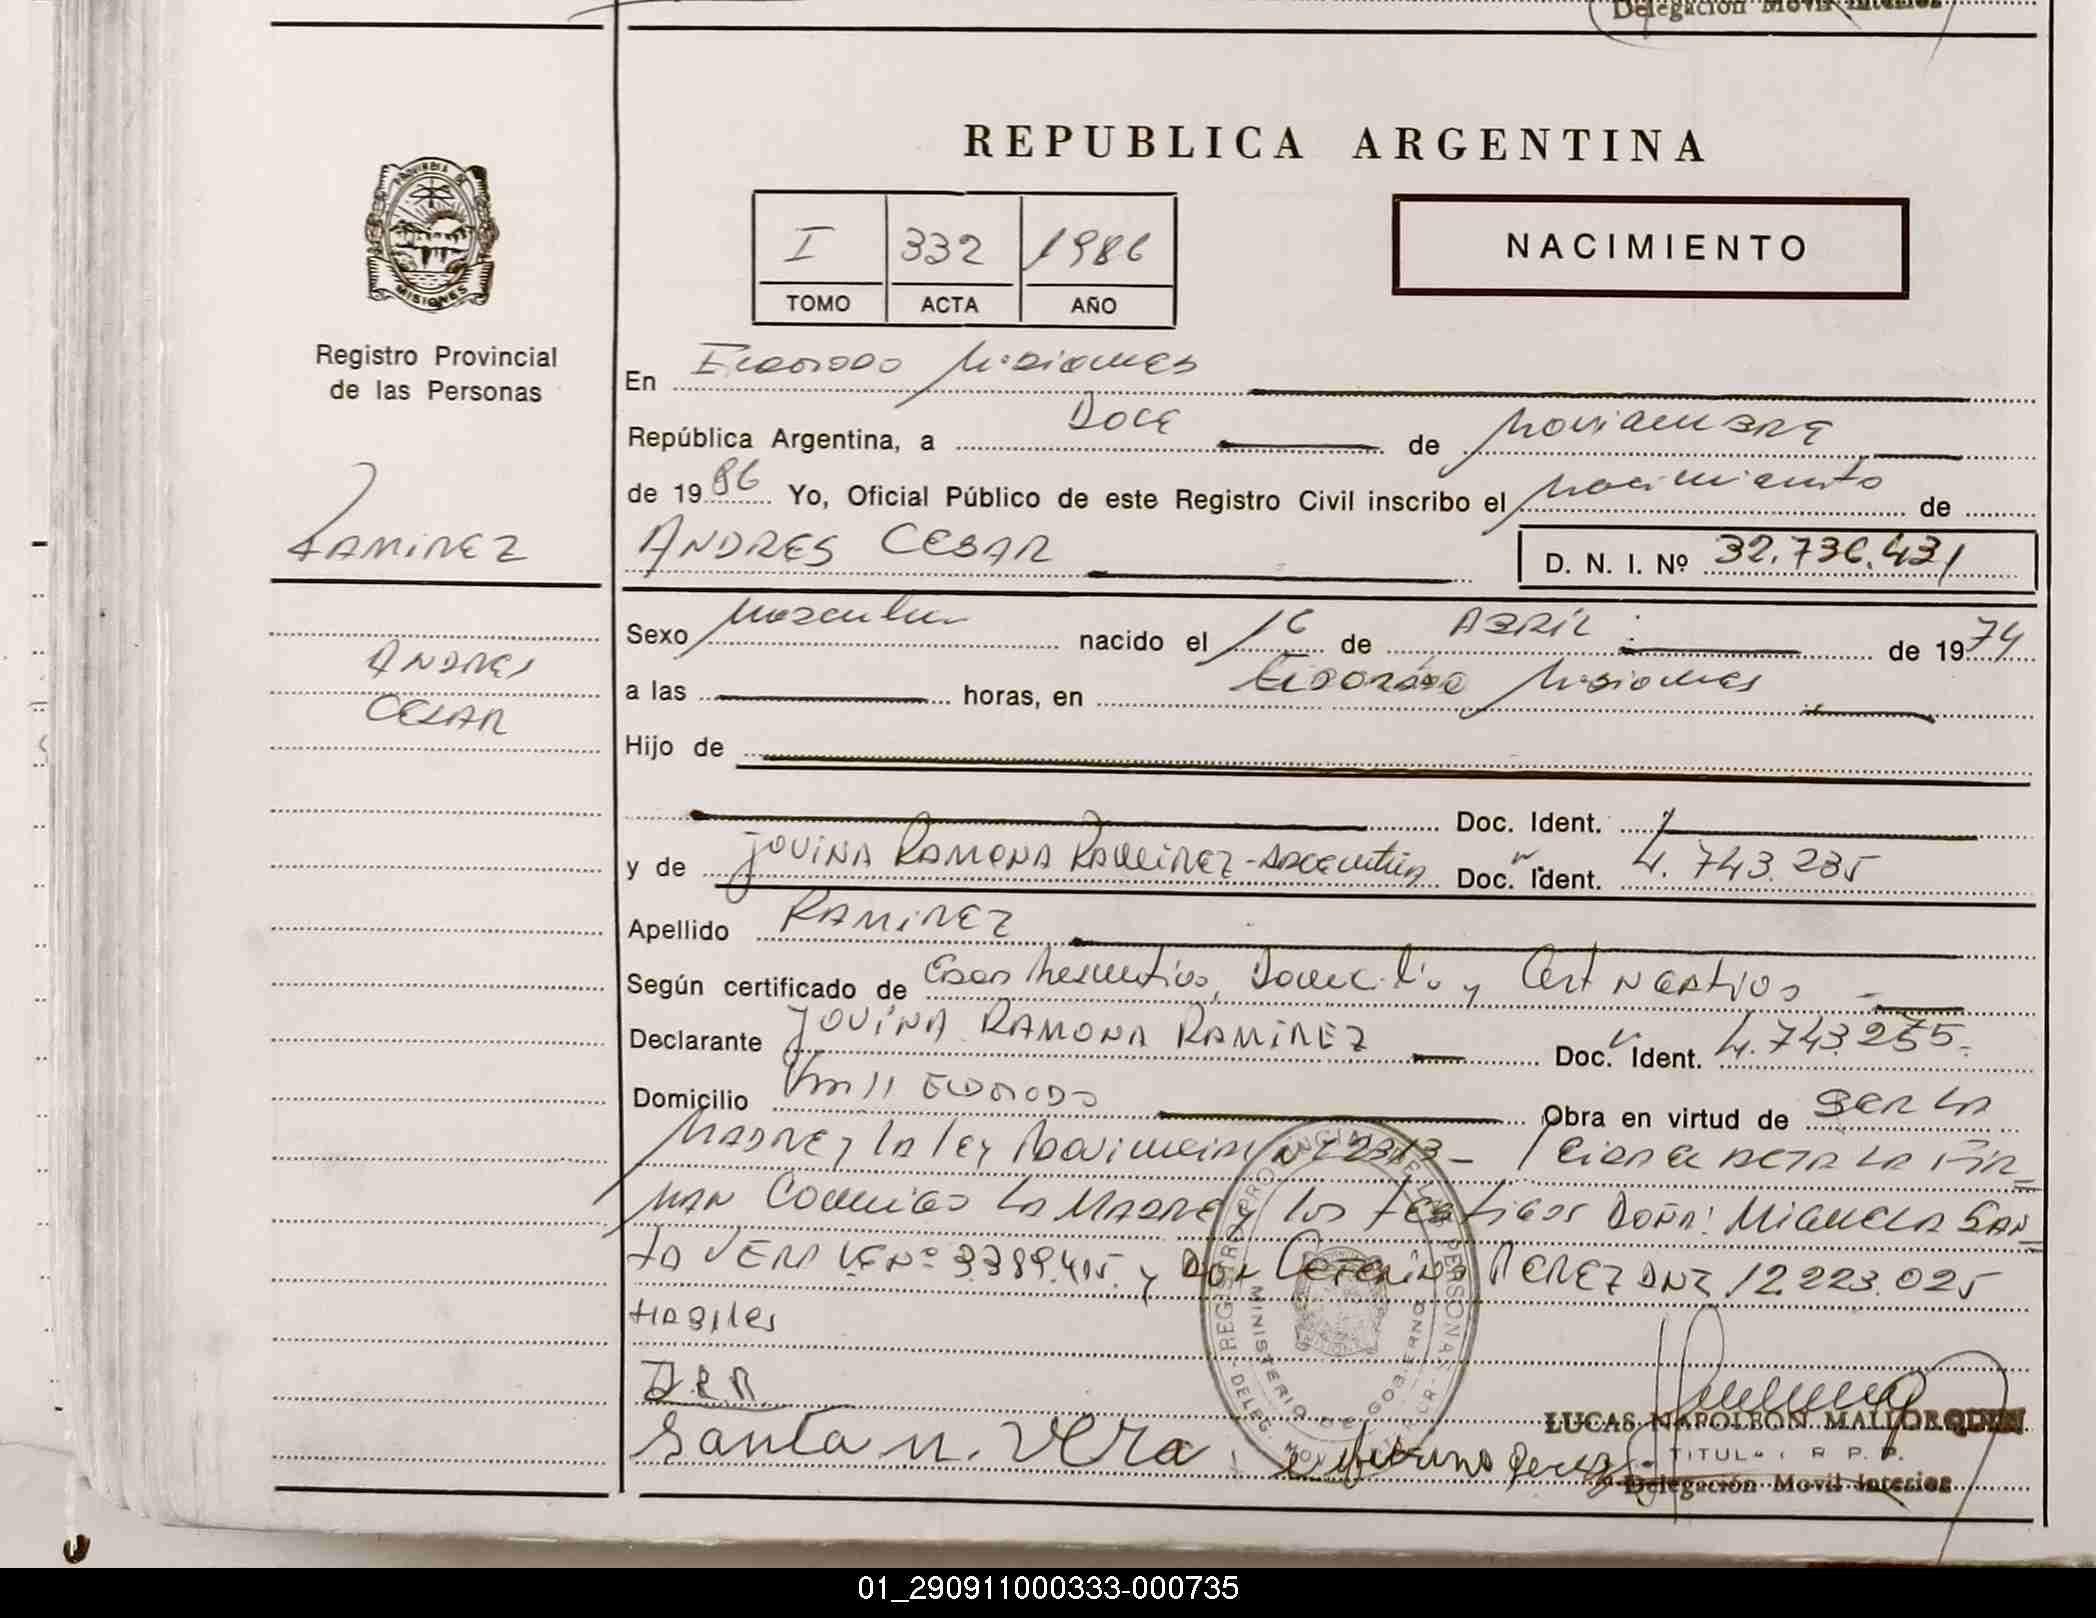 Delegación Movil Interior
REPUBLICA ARGENTINA
PROVINCIA DE
MISIONES
I 332 1986
TOMO ACTA AÑO
NACIMIENTO
Registro Provincial
de las Personas
En Eldorado Misiones
República Argentina, a Doce de Noviembre
de 1986 Yo, Oficial Público de este Registro Civil inscribo el Nacimiento de
RAMIREZ
ANDRES CESAR D. N. I. Nº 32.736.431
Sexo Masculino nacido el 16 de ABRIL de 1974
ANDRES
a las horas, en Eldorado Misiones
CESAR
Hijo de
Doc. Ident.
y de JOVINA RAMONA RAMIREZ - Argentina Doc. Ident. 4.743.235
Apellido RAMIREZ
Según certificado de Domicilio y Cert Negativos
Declarante JOVINA RAMONA RAMIREZ Doc. Ident. 4.743.255
Domicilio Km 11 ELDORADO Obra en virtud de SER LA
MADRE y la ley Provincial Nº 2313 - Leida el acta LA FIR=
MAN Conmigo LA MADRE y los testigos DOÑA: MIGUELA SAN=
TA VERA Nº 3.389.415. y DON CEFERINO PEREZ DNI 12.223.025
HABILES
Santa n. Vera
REGISTRO PROVINCIAL DE LAS PERSONAS
MINISTERIO DE GOBIERNO
LUCAS NAPOLEON MALLORQUIN
TITULAR R. P. P.
Delegación Movil Interior
01_290911000333-000735